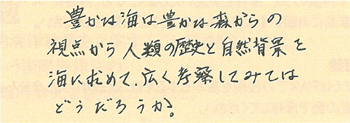 豊かな海は豊かな森からの
視点から人類の歴史と自然背景を
海に求めて、広く考察してみては
どうだろうか。